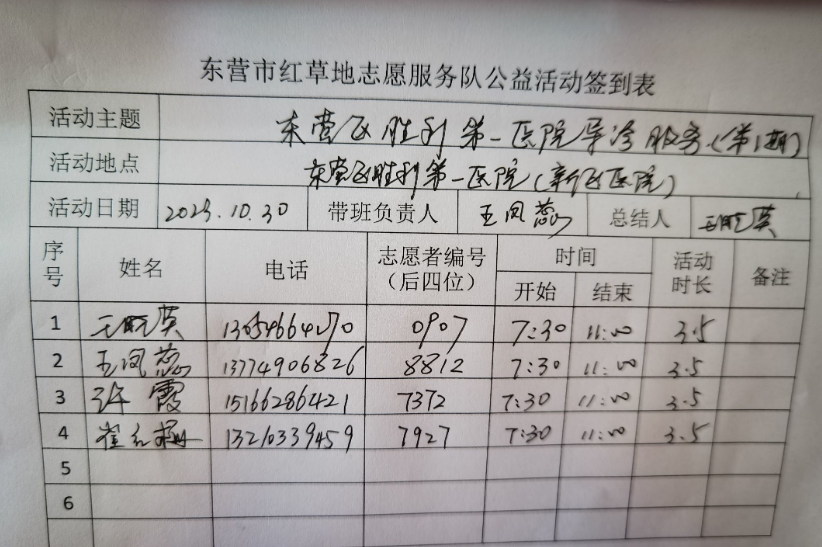 东营市红草地志愿服务队公益活动签到表
活动主题 东营区胜利第一医院导诊服务(第1期)
活动地点 东营区胜利第一医院(新区医院)
活动日期 2023.10.30 带班负责人 王凤蕊 总结人 王晓英
序号 姓名 电话 志愿者编号(后四位) 时间 开始 结束 活动时长 备注
1 王晓英 0907 7:30 11:00 3.5
2 王凤蕊 13774906826 8812 7:30 11:00 3.5
3 许霞 15166286421 7372 7:30 11:00 3.5
4 崔红 13210339459 7927 7:30 11:00 3.5
5
6